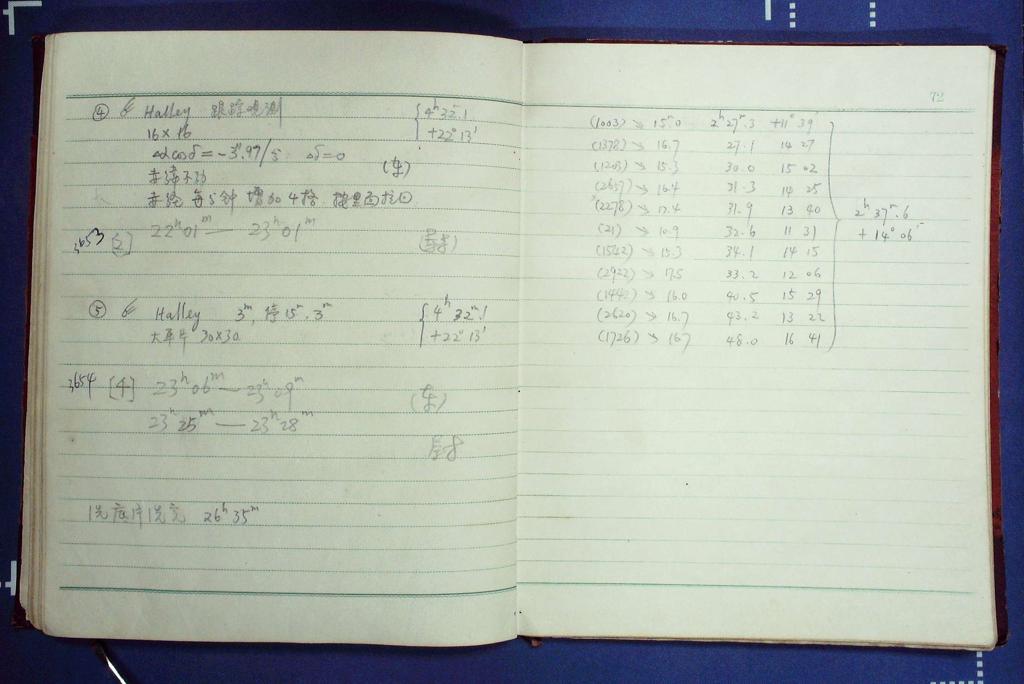 ④ Halley 跟踪观测 { 4ʰ 32ᵐ.1
16×16 +22° 13'
Δαcosδ = -3".97/5 Δδ=0
赤纬不动 (东)
赤经 每5钟 增加4格
3653 [2] 22ʰ01ᵐ — 23ʰ01ᵐ
⑤ Halley 3ᵐ, 停15ᵐ. 3ᵐ { 4ʰ 32ᵐ.1
30×30 +22° 13'
3654 [4] 23ʰ06ᵐ — 23ʰ09ᵐ (东)
23ʰ25ᵐ — 23ʰ28ᵐ
洗底片洗完 26ʰ35ᵐ
72
(1003) ↘ 15.0 2ʰ27ᵐ.3 +11° 39
(1378) ↘ 16.7 27.1 14 27
(1203) ↘ 15.3 30.0 15 02
(2657) ↘ 16.4 31.3 14 25
(2278) ↘ 17.4 31.9 13 40 2ʰ 37ᵐ.6
(21) ↘ 10.9 32.6 11 31 +14° 06'
(1542) ↘ 15.3 34.1 14 15
(2922) ↘ 17.5 33.2 12 06
(1442) ↘ 16.0 40.5 15 29
(2620) ↘ 16.7 43.2 13 22
(1726) ↘ 16.7 48.0 16 41